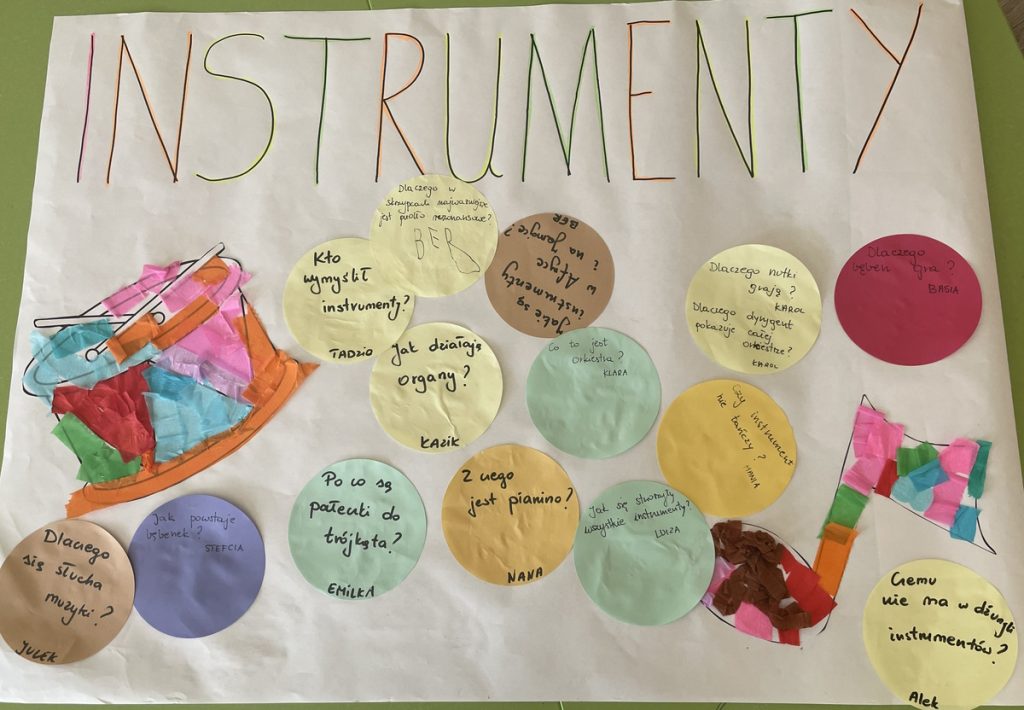 INSTRUMENTY
Dlaczego w
skrzypcach najważniejsze
jest pudło rezonansowe?
BER
Kto
wymyślił
instrumenty?
TADZIO
Jakie są
instrumenty
w Afryce
i na
BER
Jak działają
organy?
KAZIK
Co to jest
orkiestra?
KLARA
Dlaczego nutki
grają?
KAROL
Dlaczego dyrygent
pokazuje całej
orkiestrze?
KAROL
Dlaczego
bęben gra?
BASIA
Czy instrument
nie tańczy?
MANIA
Dlaczego
się słucha
muzyki?
JULEK
Jak powstaje
bębenek?
STEFCIA
Po co są
pałeczki do
trójkąta?
EMILKA
Z czego
jest pianino?
NANA
Jak się stworzyły
wszystkie instrumenty?
Czemu
nie ma w dżungli
instrumentów?
Alek